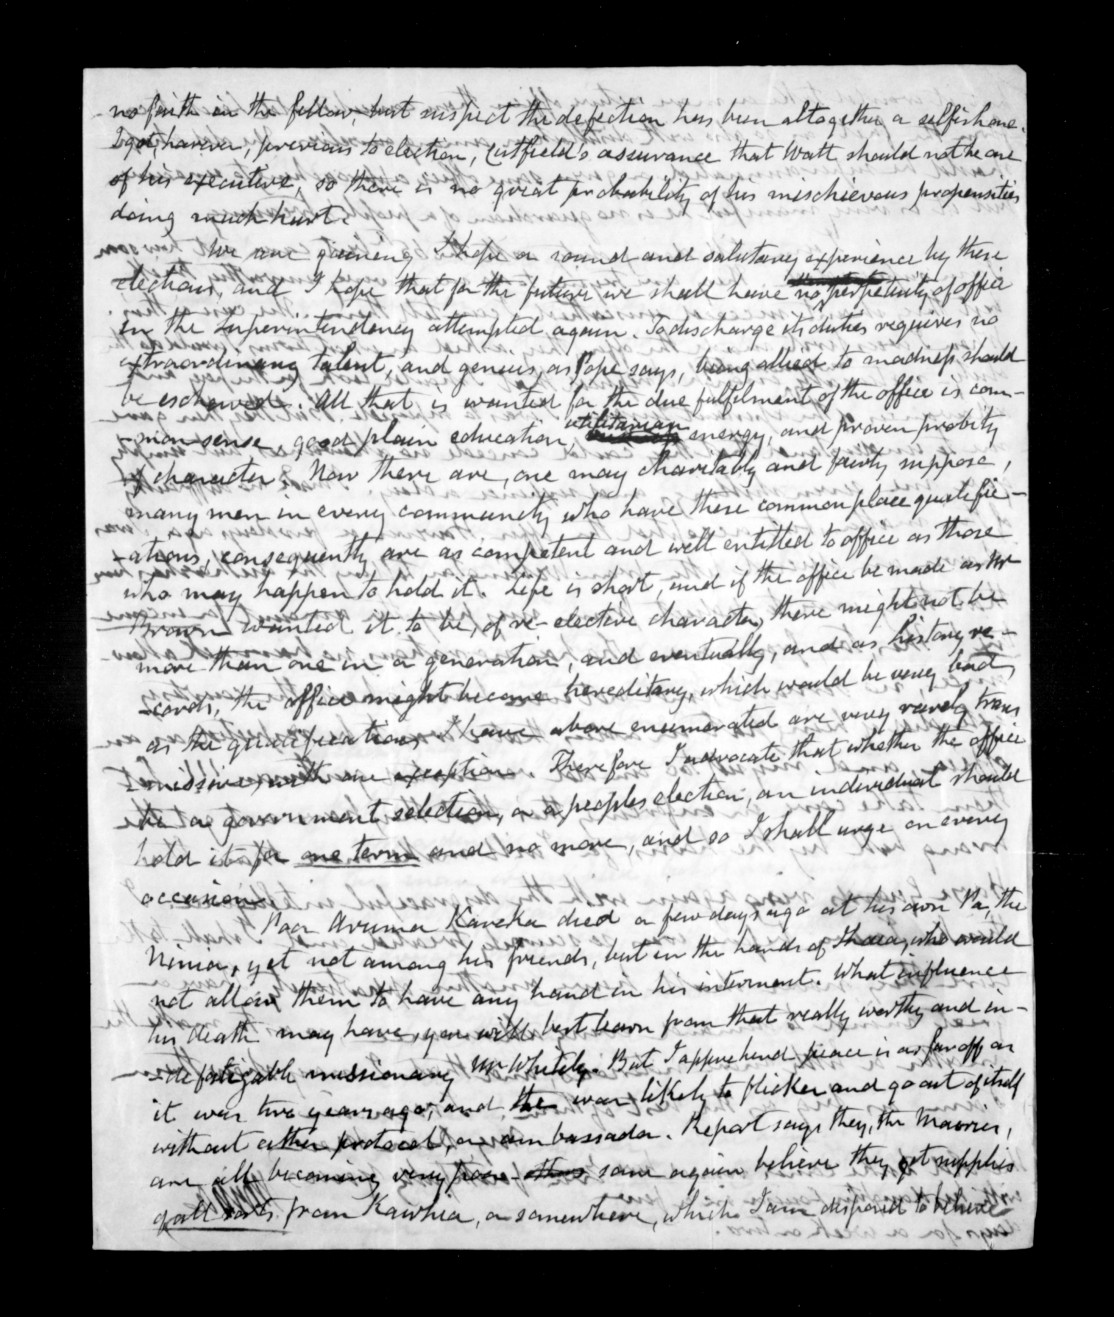 no faith in the fellow, but suspect the defection has been altogether a selfish one.
I got, however, previous to election, Cutfield's assurance that Watt should not be one
of his executive, so there is no great probability of his mischievous propensities
doing much hurt.
We are gaining I hope a sound and salutary experience by these
elections, and I hope that for the future we shall have no perpetuity of office
in the Superintendency attempted again. To discharge its duties requires no
extraordinary talent, and genius, as Pope says, being allied to madness should
be eschewed. All that is wanted for the due fulfilment of the office is com-
-mon sense, good plain education, utilitarian energy, and proven probity
of character. Now there are, one may charitably and fairly suppose,
many men in every community who have these common place qualific-
-ations, consequently are as competent and well entitled to office as those
who may happen to hold it. Life is short, and if the office be made as Mr
Brown wanted it to be, of re-elective character, there might not be
more than one in a generation, and eventually, and as history re-
-cords, the office might become hereditary, which would be very bad,
as the qualifications I have above enumerated are very rarely trans
-missive, with an exception. Therefore I advocate that whether the office
be a government selection, or a peoples election, an individual should
hold it for one term and no more, and so I shall urge on every
occasion.
Poor Arama Karaka died a few days ago at his own Pa, the
Ninia, yet not among his friends, but in the hands of Ihaia, who would
not allow them to have any hand in his interment. What influence
his death may have, you will best learn from that really worthy and in-
-defatigable missionary Mr Whitely. But I apprehend peace is as far off as
it was two years ago, and the war likely to flicker and go out of itself
without either protocol, or ambassador. Report says they, the Maories,
are all becoming very poor - some again believe they get supplies
of all sorts from Kawhia, or somewhere, which I am disposed to believe